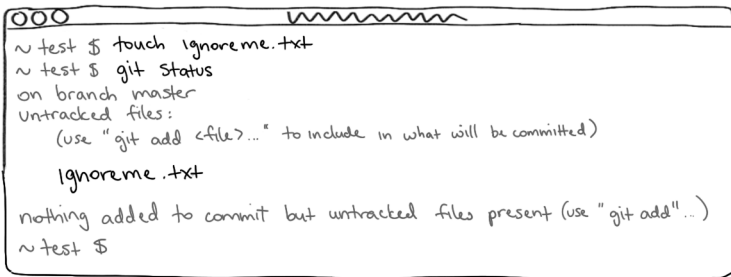 ~ test $ touch ignoreme.txt
~ test $ git status
on branch master
untracked files:
(use "git add <file>..." to include in what will be committed)
ignoreme.txt
nothing added to commit but untracked files present (use "git add"...)
~ test $